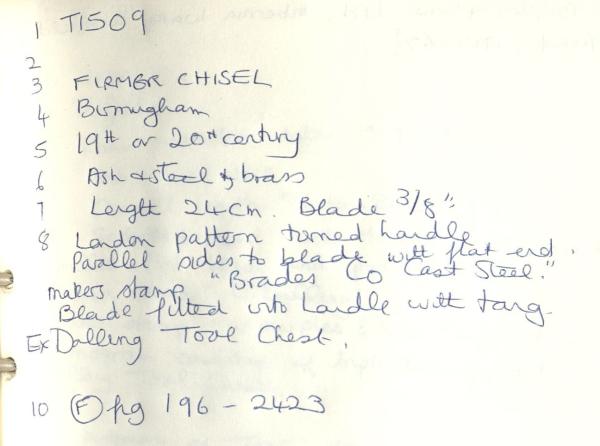 1 T1509
2
3 FIRMER CHISEL
4 Birmingham
5 19th or 20th century
6 Ash & steel & brass
7 Length 24cm. Blade 3/8".
8 London pattern turned handle
Parallel sides to blade with flat end.
makers stamp "Brades Co Cast Steel."
Blade fitted into handle with tang.
Ex Dalling Tool Chest.
10 (F) pg 196 - 2423